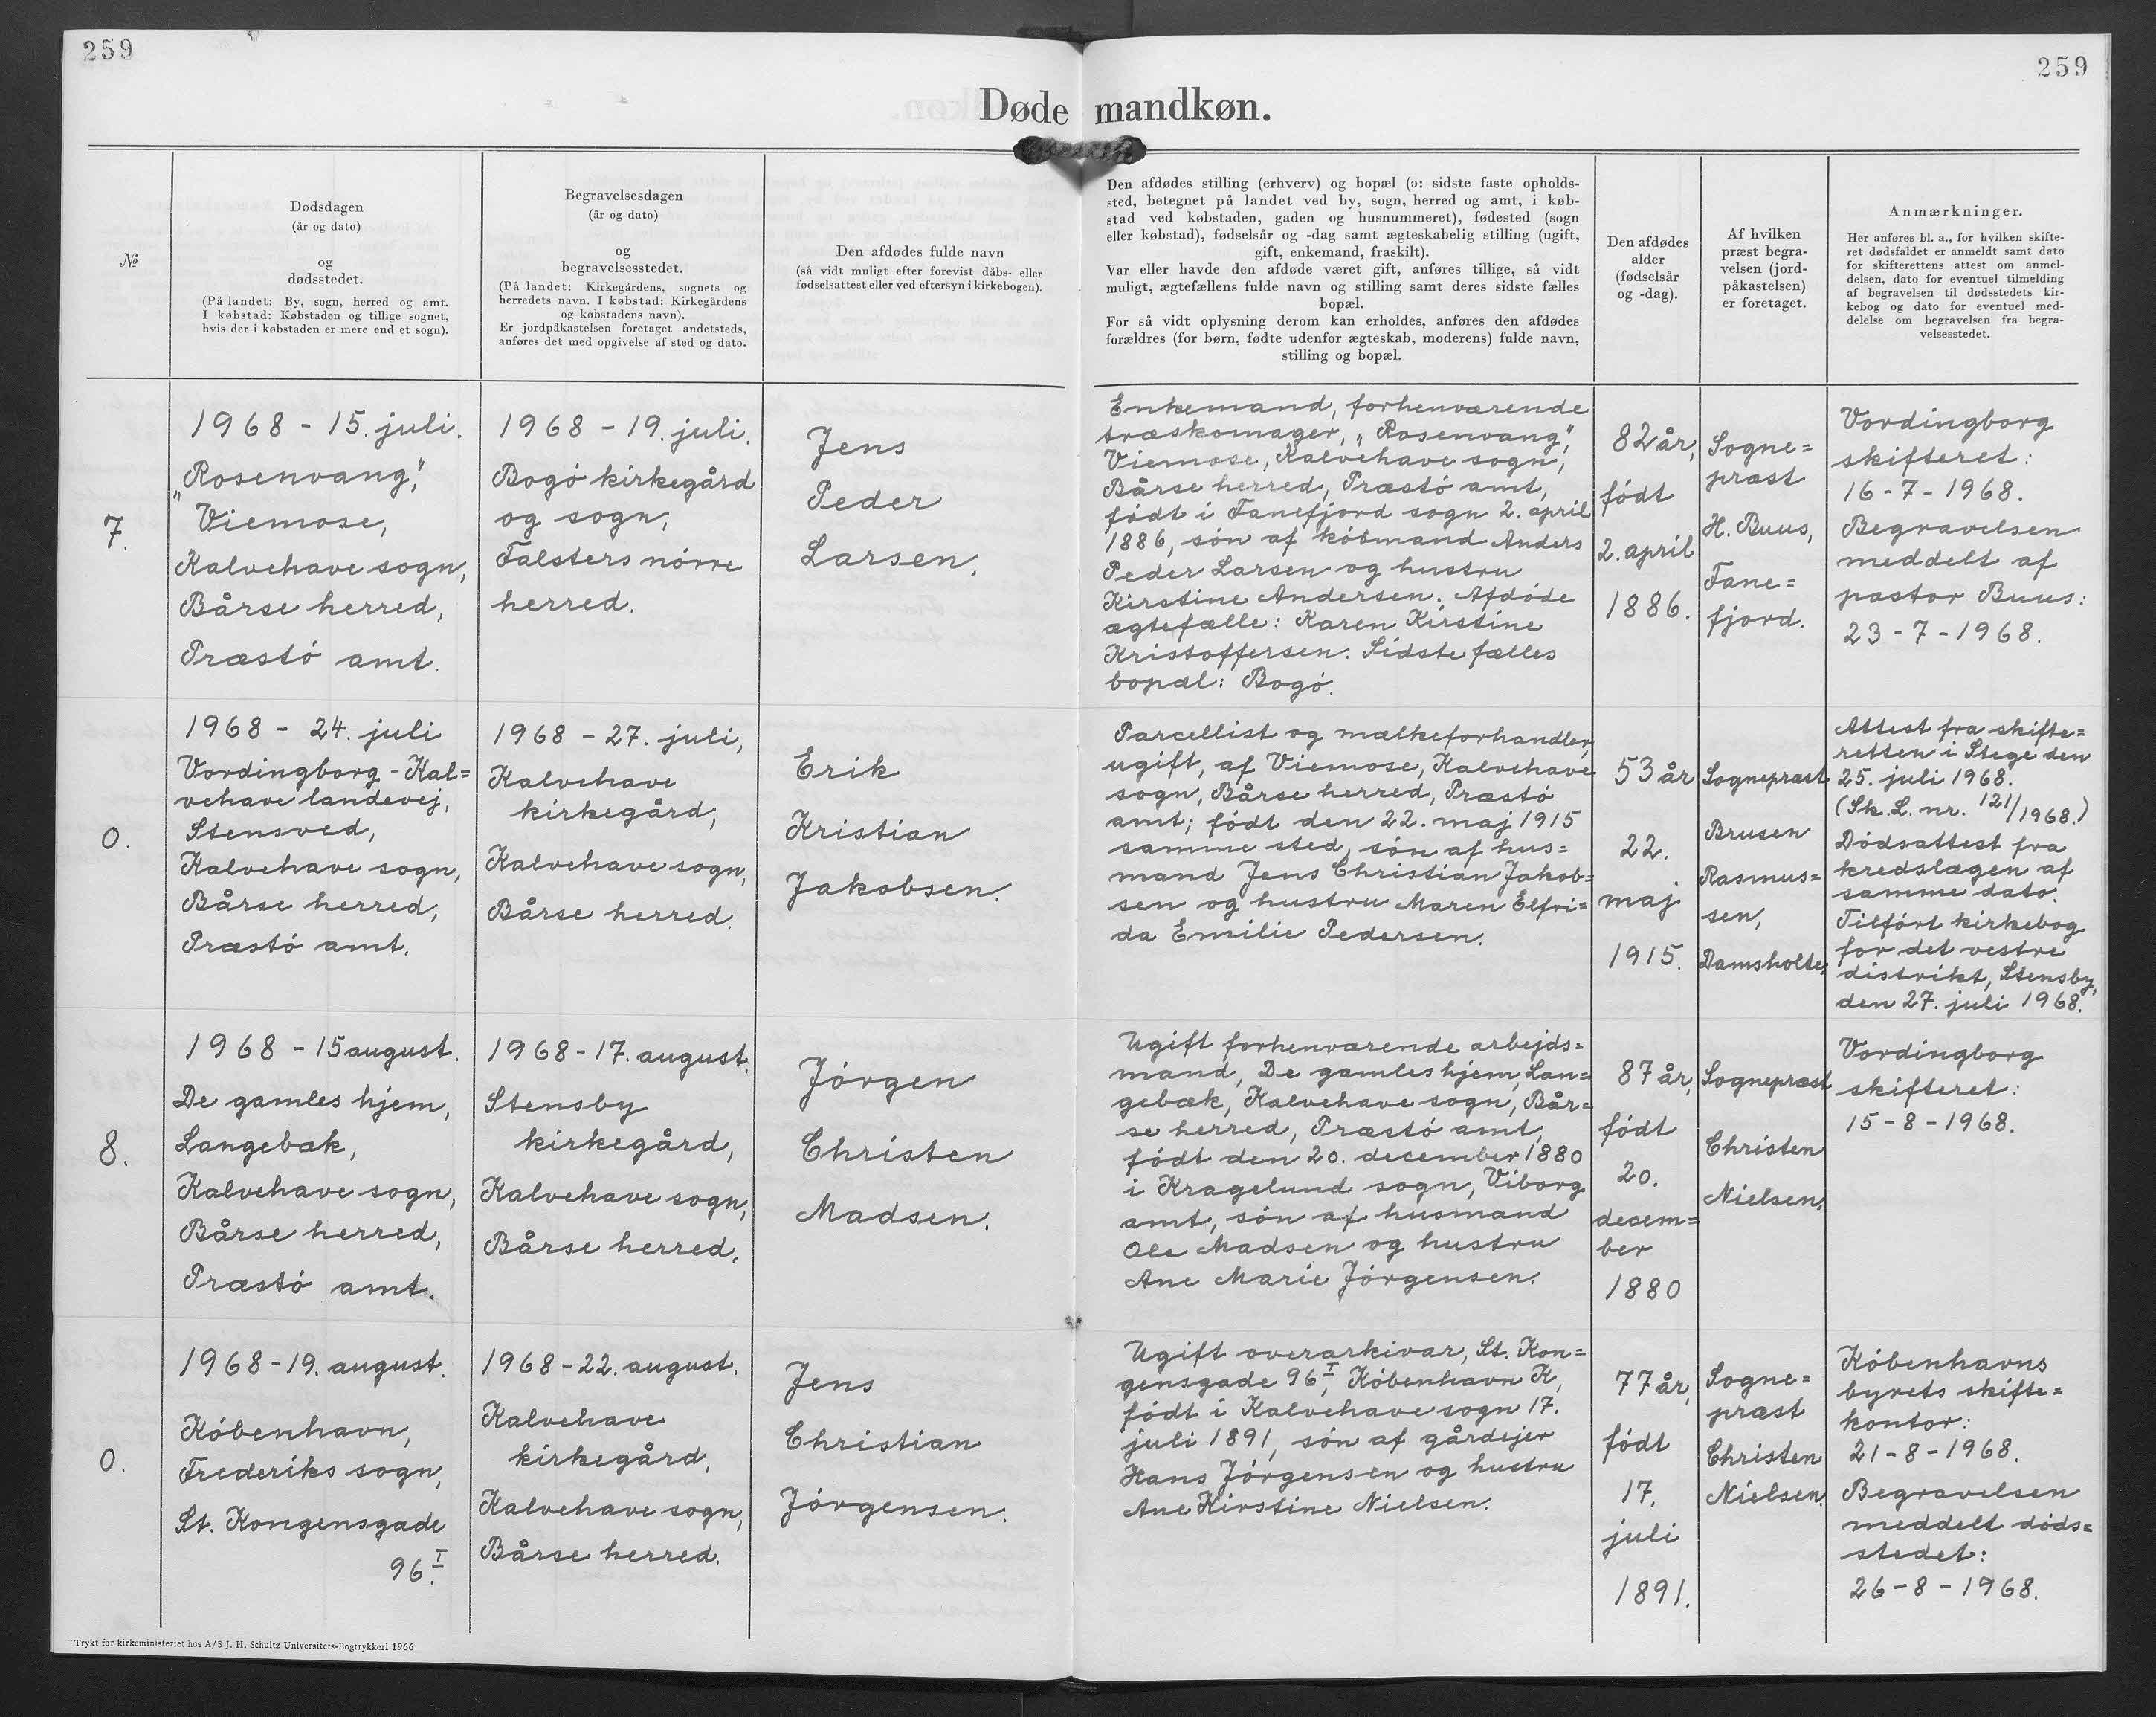 259
259
Døde mandkøn.
№
Dødsdagen
(år og dato)
og
dødsstedet.
(På landet: By, sogn, herred og amt.
I købstad: Købstaden og tillige sognet,
hvis der i købstaden er mere end et sogn).
Begravelsesdagen
(år og dato)
og
begravelsesstedet.
(På landet: Kirkegårdens, sognets og
herredets navn. I købstad: Kirkegårdens
og købstadens navn).
Er jordpåkastelsen foretaget andetsteds,
anføres det med opgivelse af sted og dato.
Den afdødes fulde navn
(så vidt muligt efter forevist dåbs- eller
fødselsattest eller ved eftersyn i kirkebogen).
Den afdødes stilling (erhverv) og bopæl (ɔ: sidste faste opholds-
sted, betegnet på landet ved by, sogn, herred og amt, i køb-
stad ved købstaden, gaden og husnummeret), fødested (sogn
eller købstad), fødselsår og -dag samt ægteskabelig stilling (ugift,
gift, enkemand, fraskilt).
Var eller havde den afdøde været gift, anføres tillige, så vidt
muligt, ægtefællens fulde navn og stilling samt deres sidste fælles
bopæl.
For så vidt oplysning derom kan erholdes, anføres den afdødes
forældres (for børn, fødte udenfor ægteskab, moderens) fulde navn,
stilling og bopæl.
Den afdødes
alder
(fødselsår
og -dag).
Af hvilken
præst begra-
velsen (jord-
påkastelsen)
er foretaget.
Anmærkninger.
Her anføres bl. a., for hvilken skifte-
ret dødsfaldet er anmeldt samt dato
for skifterettens attest om anmel-
delsen, dato for eventuel tilmelding
af begravelsen til dødsstedets kir-
kebog og dato for eventuel med-
delelse om begravelsen fra begra-
velsesstedet.
7.
1968 - 15. juli.
"Rosenvang",
Viemose,
Kalvehave sogn,
Bårse herred,
Præstø amt.
1968 - 19. juli.
Bogø kirkegård
og sogn,
Falsters nørre
herred.
Jens
Peder
Larsen.
Enkemand, forhenværende
træskomager, "Rosenvang",
Viemose, Kalvehave sogn,
Bårse herred, Præstø amt,
født i Fanefjord sogn 2. april
1886, søn af købmand Anders
Peder Larsen og hustru
Kirstine Andersen. Afdøde
ægtefælle: Karen Kirstine
Kristoffersen. Sidste fælles
bopæl: Bogø.
82 år,
født
2. april
1886.
Sogne=
præst
H. Buus,
Fane=
fjord.
Vordingborg
skifteret:
16-7-1968.
Begravelsen
meddelt af
pastor Buus:
23-7-1968.
0.
1968 - 24. juli
Vordingborg-Kal=
vehave landevej,
Stensved,
Kalvehave sogn,
Bårse herred,
Præstø amt.
1968 - 27. juli,
Kalvehave
kirkegård,
Kalvehave sogn,
Bårse herred.
Erik
Kristian
Jakobsen.
Parcellist og mælkeforhandler,
ugift, af Viemose, Kalvehave
sogn, Bårse herred, Præstø
amt; født den 22. maj 1915
samme sted, søn af hus=
mand Jens Christian Jakob=
sen og hustru Maren Elfri=
da Emilie Pedersen.
53 år
22.
maj
1915.
Sognepræst
Brusen
Rasmus=
sen,
Damsholte.
Attest fra skifte=
retten i Stege den
25. juli 1968.
(Sk. L. nr. 121/1968.)
Dødsattest fra
kredslægen af
samme dato.
Tilført kirkebog
for det vestre
distrikt, Stensby,
den 27. juli 1968.
8.
1968 - 15 august.
De gamles hjem,
Langebæk,
Kalvehave sogn,
Bårse herred,
Præstø amt.
1968-17. august.
Stensby
kirkegård,
Kalvehave sogn,
Bårse herred.
Jørgen
Christen
Madsen.
Ugift forhenværende arbejds=
mand, De gamles hjem, Lan=
gebæk, Kalvehave sogn, Bår=
se herred, Præstø amt,
født den 20. december 1880
i Kragelund sogn, Viborg
amt, søn af husmand
Ole Madsen og hustru
Ane Marie Jørgensen.
87 år,
født
20.
decem=
ber
1880
Sognepræst
Christen
Nielsen.
Vordingborg
skifteret:
15-8-1968.
0.
1968-19. august.
København,
Frederiks sogn,
St. Kongensgade
96 I.
1968-22. august.
Kalvehave
kirkegård,
Kalvehave sogn,
Bårse herred.
Jens
Christian
Jørgensen.
Ugift overarkivar, St. Kon=
gensgade 96 I, København K,
født i Kalvehave sogn 17.
juli 1891, søn af gårdejer
Hans Jørgensen og hustru
Ane Kirstine Nielsen.
77 år,
født
17.
juli
1891.
Sogne=
præst
Christen
Nielsen.
Københavns
byrets skifte=
kontor:
21-8-1968.
Begravelsen
meddelt døds=
stedet:
26-8-1968.
Trykt for kirkeministeriet hos A/S J. H. Schultz Universitets-Bogtrykkeri 1966